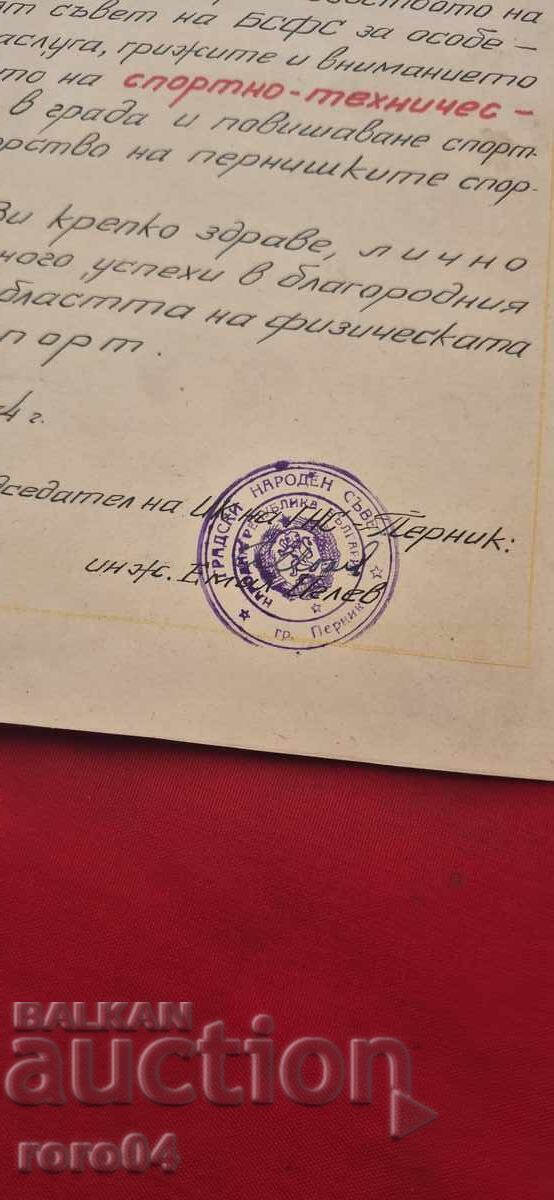 т съвет на БСФС за особе-
аслуга, грижите и вниманието
то на спортно-техничес-
в града и повишаване спорт-
орство на пернишките спор-
Ви крепко здраве, лично
ного, успехи в благородния
бластта на физическата
порт.
4 г.
дседател на ИК на ГНС - Перник:
инж. Емил Пелев
ГРАДСКИ НАРОДЕН СЪВЕТ
НАРОДНА РЕПУБЛИКА БЪЛГАРИЯ
гр. Перник
BALKAN
auction
roro04